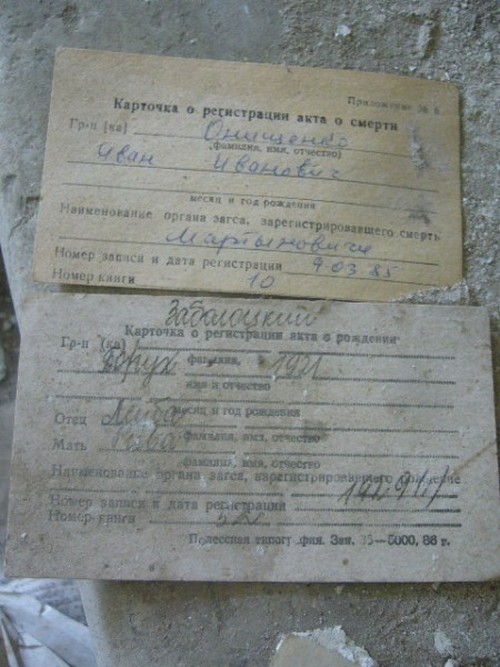 Приложение №
Карточка о регистрации акта о смерти
Гр-н (ка) Онищенко
(фамилия, имя, отчество)
Иван Иванович
месяц и год рождения
Наименование органа загса, зарегистрировавшего смерть
Мартыновичи
Номер записи и дата регистрации 9 03 85
Номер книги 10
Заболоцкий
Карточка о регистрации акта о рождении
Гр-н (ка)
Борух фамилия, 1921
имя и отчество
месяц и год рождения
Отец Лейба
фамилия, имя, отчество
Мать
фамилия, имя, отчество
Наименование органа загса, зарегистрировавшего рождение
Номер записи и дата регистрации
Номер книги 52
Полесская типография. Зак. 35—5000, 86 г.